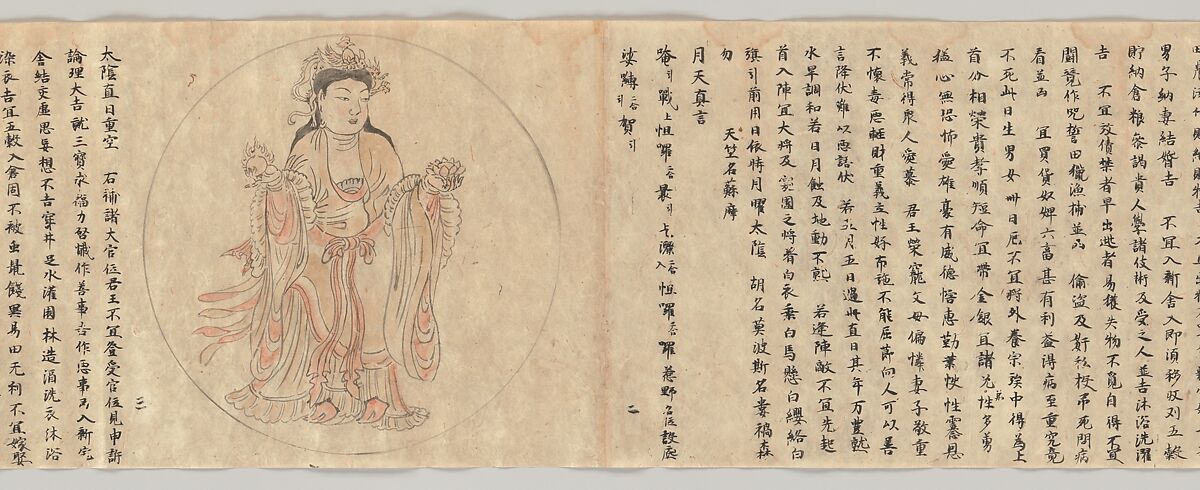 男子納妻結婚吉　不宜入新舍入即須移收刈五穀
貯納倉粮叅謁貴人學諸伎術及受之人並吉沐浴洗濯
吉　不宜放債禁者早出逃者易獲失物不覓自得不宜
鬪競作咒誓田獵漁捕並凶　偷盜及奸私投吊死問病
看並凶　宜買貨奴婢六畜甚有利益得病至重究竟
不死此日生男女卅日厄不宜將外養宗族中得為上
首分相榮貴孝順短命宜帶金銀宜諸兄弟性多勇
猛心無恐怖愛雄豪有威德惛惠勤業快性靈恩
義常得眾人愛慕　君王榮寵父母偏憐妻子敬重
不懷毒惡輕財重義立性好布施不能屈節向人可以善
言降伏難以惡語伏　若五月五日遇此直日其年万豊就
水旱調和若日月蝕及地動不熟　若逢陣敵不宜先起
首入陣宜大將及家國之將着白衣乘白馬懸白纓絡白
旗引前用日依時月曜太陰　胡名莫波斯名婁禍森
勿　天竺名蘇摩
月天真言
唵引戰上怛羅二合最引
娑嚩二合引賀引
二
太陰直日重空　右補諸大官位君王不宜登受官位見申訴
三
論理大吉就三寶求福力啓懺作善事吉作惡事凶入新宅
舍結交虛思妄想不吉穿井足水灌園林造酒洗衣沐浴
染衣吉宜五穀入倉囷不被虫耗饒異易田无利不宜嫁娶